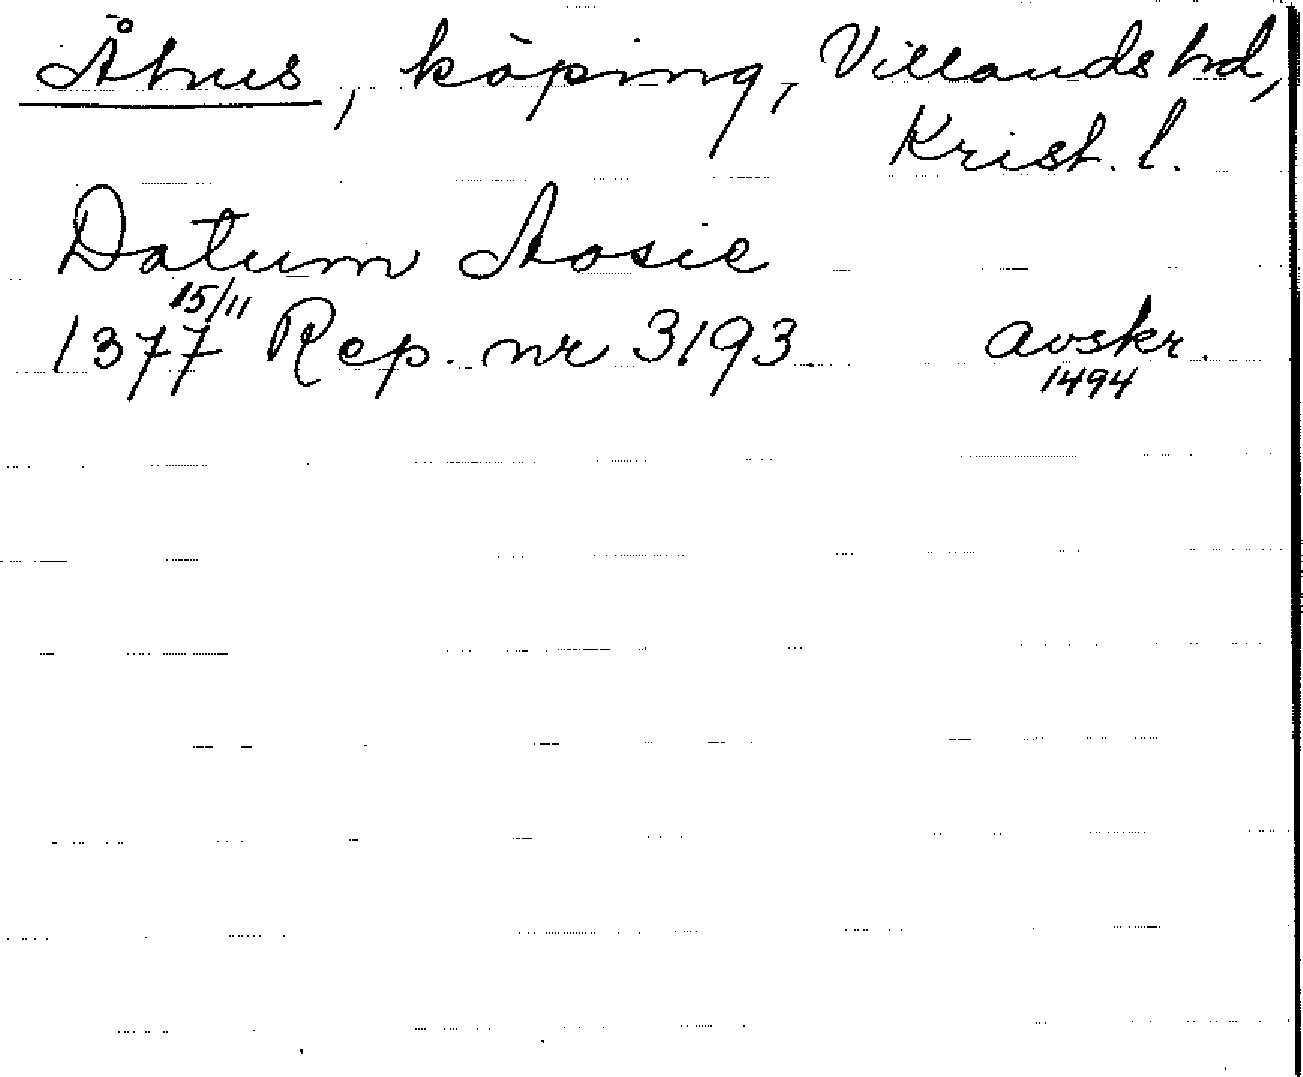 Åhus, köping, Villands hd,
Krist. l.
Datum Aosie
15/11
1377 Rep. nr 3193 avskr.
1494